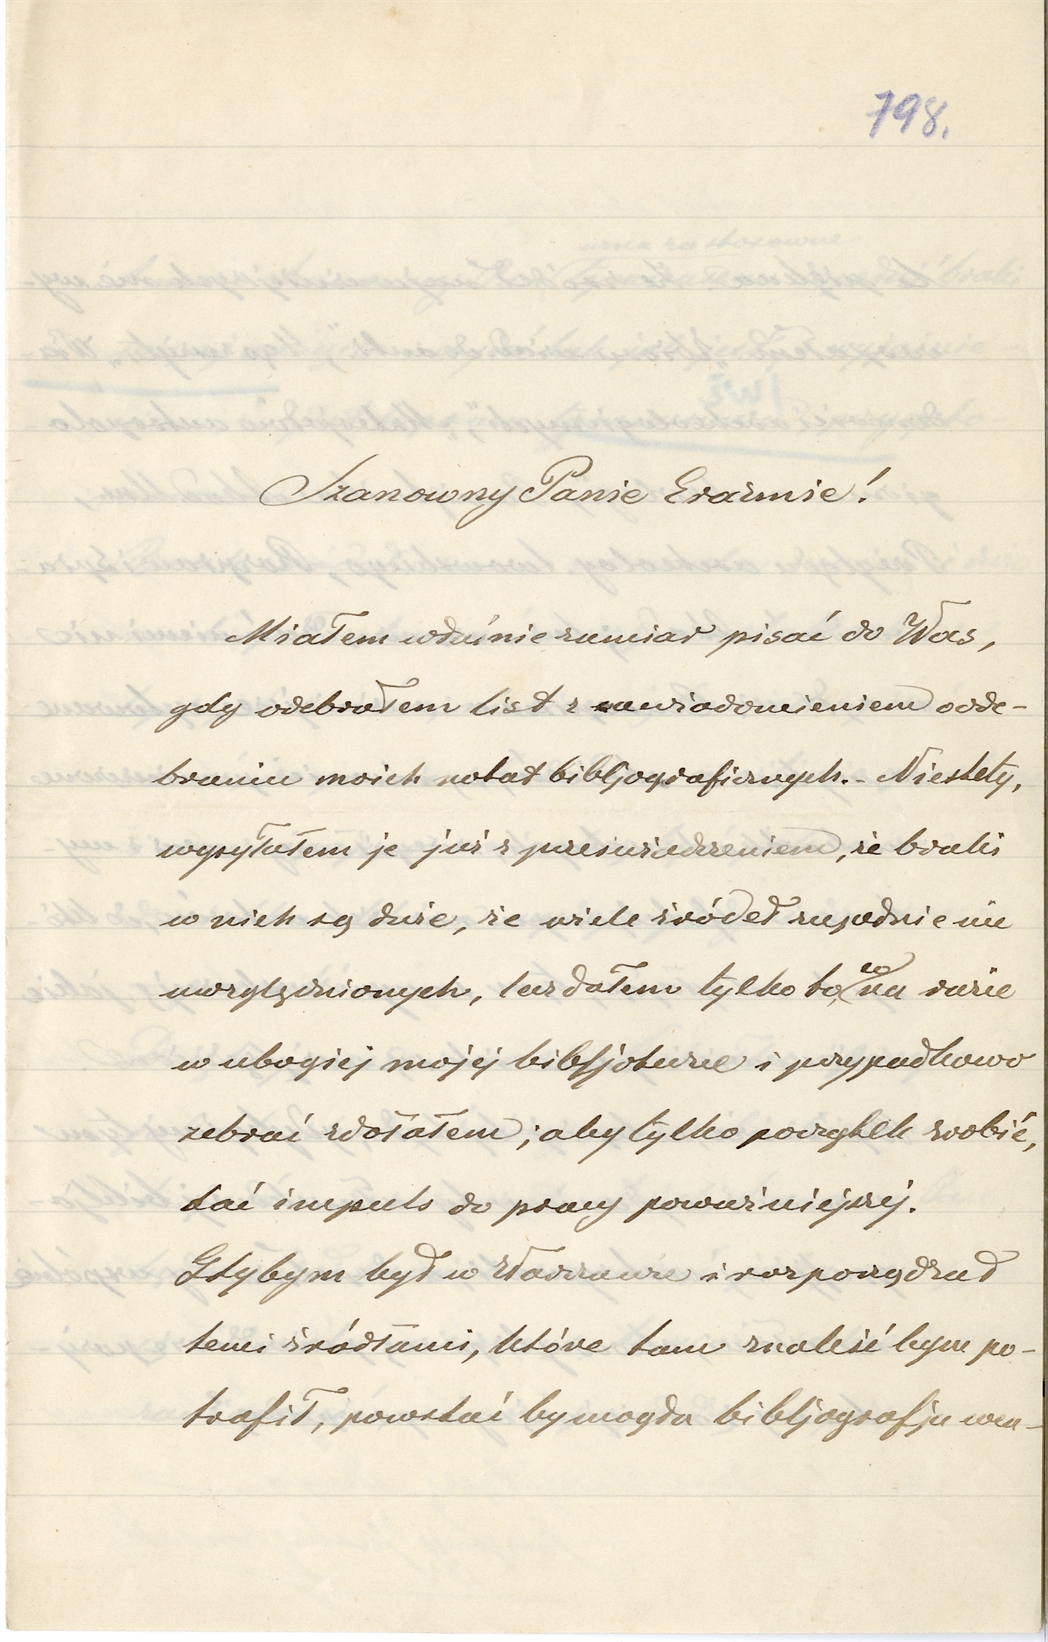 798.
Szanowny Panie Erazmie!
Miałem właśnie zamiar pisać do Was,
gdy odebrałem list z zawiadomieniem ode-
braniu moich notat bibljograficznych. - Niestety,
wysyłałem je już z przeświadczeniem, że braki
w nich są duże, że wiele źródeł zupełnie nie
uwzględnionych, lecz dałem tylko to, co na razie
w ubogiej mojej bibljotece i przypadkowo
zebrać zdołałem; aby tylko początek zrobić,
dać impuls do pracy poważniejszej.
Gdybym był w Warszawie i rozporządzał
temi źródłami, które tam znaleść bym po-
trafił, powstać by mogła bibljografja wca-